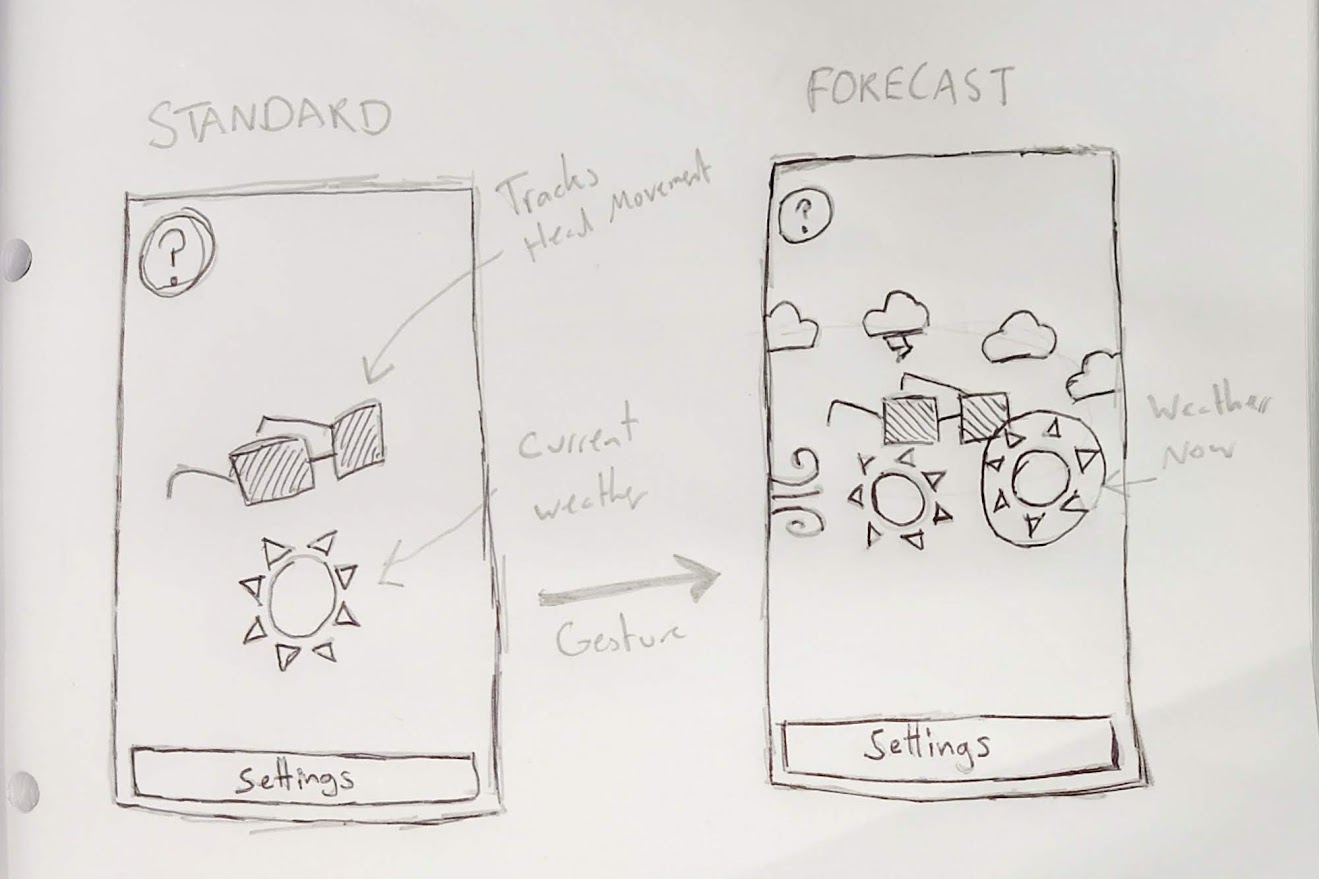 STANDARD
FORECAST
?
Tracks
Head Movement
Current
weather
Settings
Gesture
?
Weather
Now
Settings